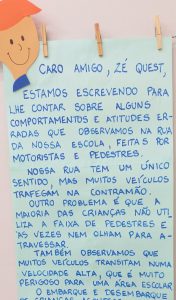 CARO AMIGO, ZÉ QUEST,
ESTAMOS ESCREVENDO PARA
LHE CONTAR SOBRE ALGUNS
COMPORTAMENTOS E ATITUDES ER-
RADAS QUE OBSERVAMOS NA RUA
DA NOSSA ESCOLA, FEITAS POR
MOTORISTAS E PEDESTRES.
NOSSA RUA TEM UM ÚNICO
SENTIDO, MAS MUITOS VEÍCULOS
TRAFEGAM NA CONTRAMÃO.
OUTRO PROBLEMA É QUE A
MAIORIA DAS CRIANÇAS NÃO UTI-
LIZA A FAIXA DE PEDESTRES E
ÀS VEZES NEM OLHAM PARA A-
TRAVESSAR.
TAMBÉM OBSERVAMOS QUE
MUITOS VEÍCULOS TRANSITAM NUMA
VELOCIDADE ALTA, QUE É MUITO
PERIGOSO PARA UMA ÁREA ESCOLAR
O EMBARQUE E DESEMBARQUE